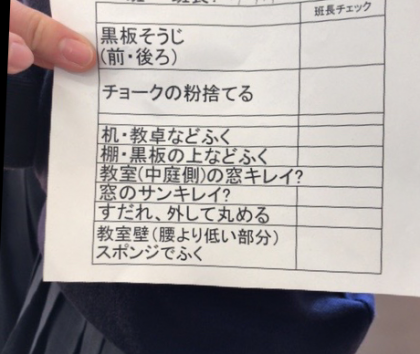 班長チェック
黒板そうじ
(前・後ろ)
チョークの粉捨てる
机・教卓などふく
棚・黒板の上などふく
教室(中庭側)の窓キレイ?
窓のサンキレイ?
すだれ、外して丸める
教室壁(腰より低い部分)
スポンジでふく